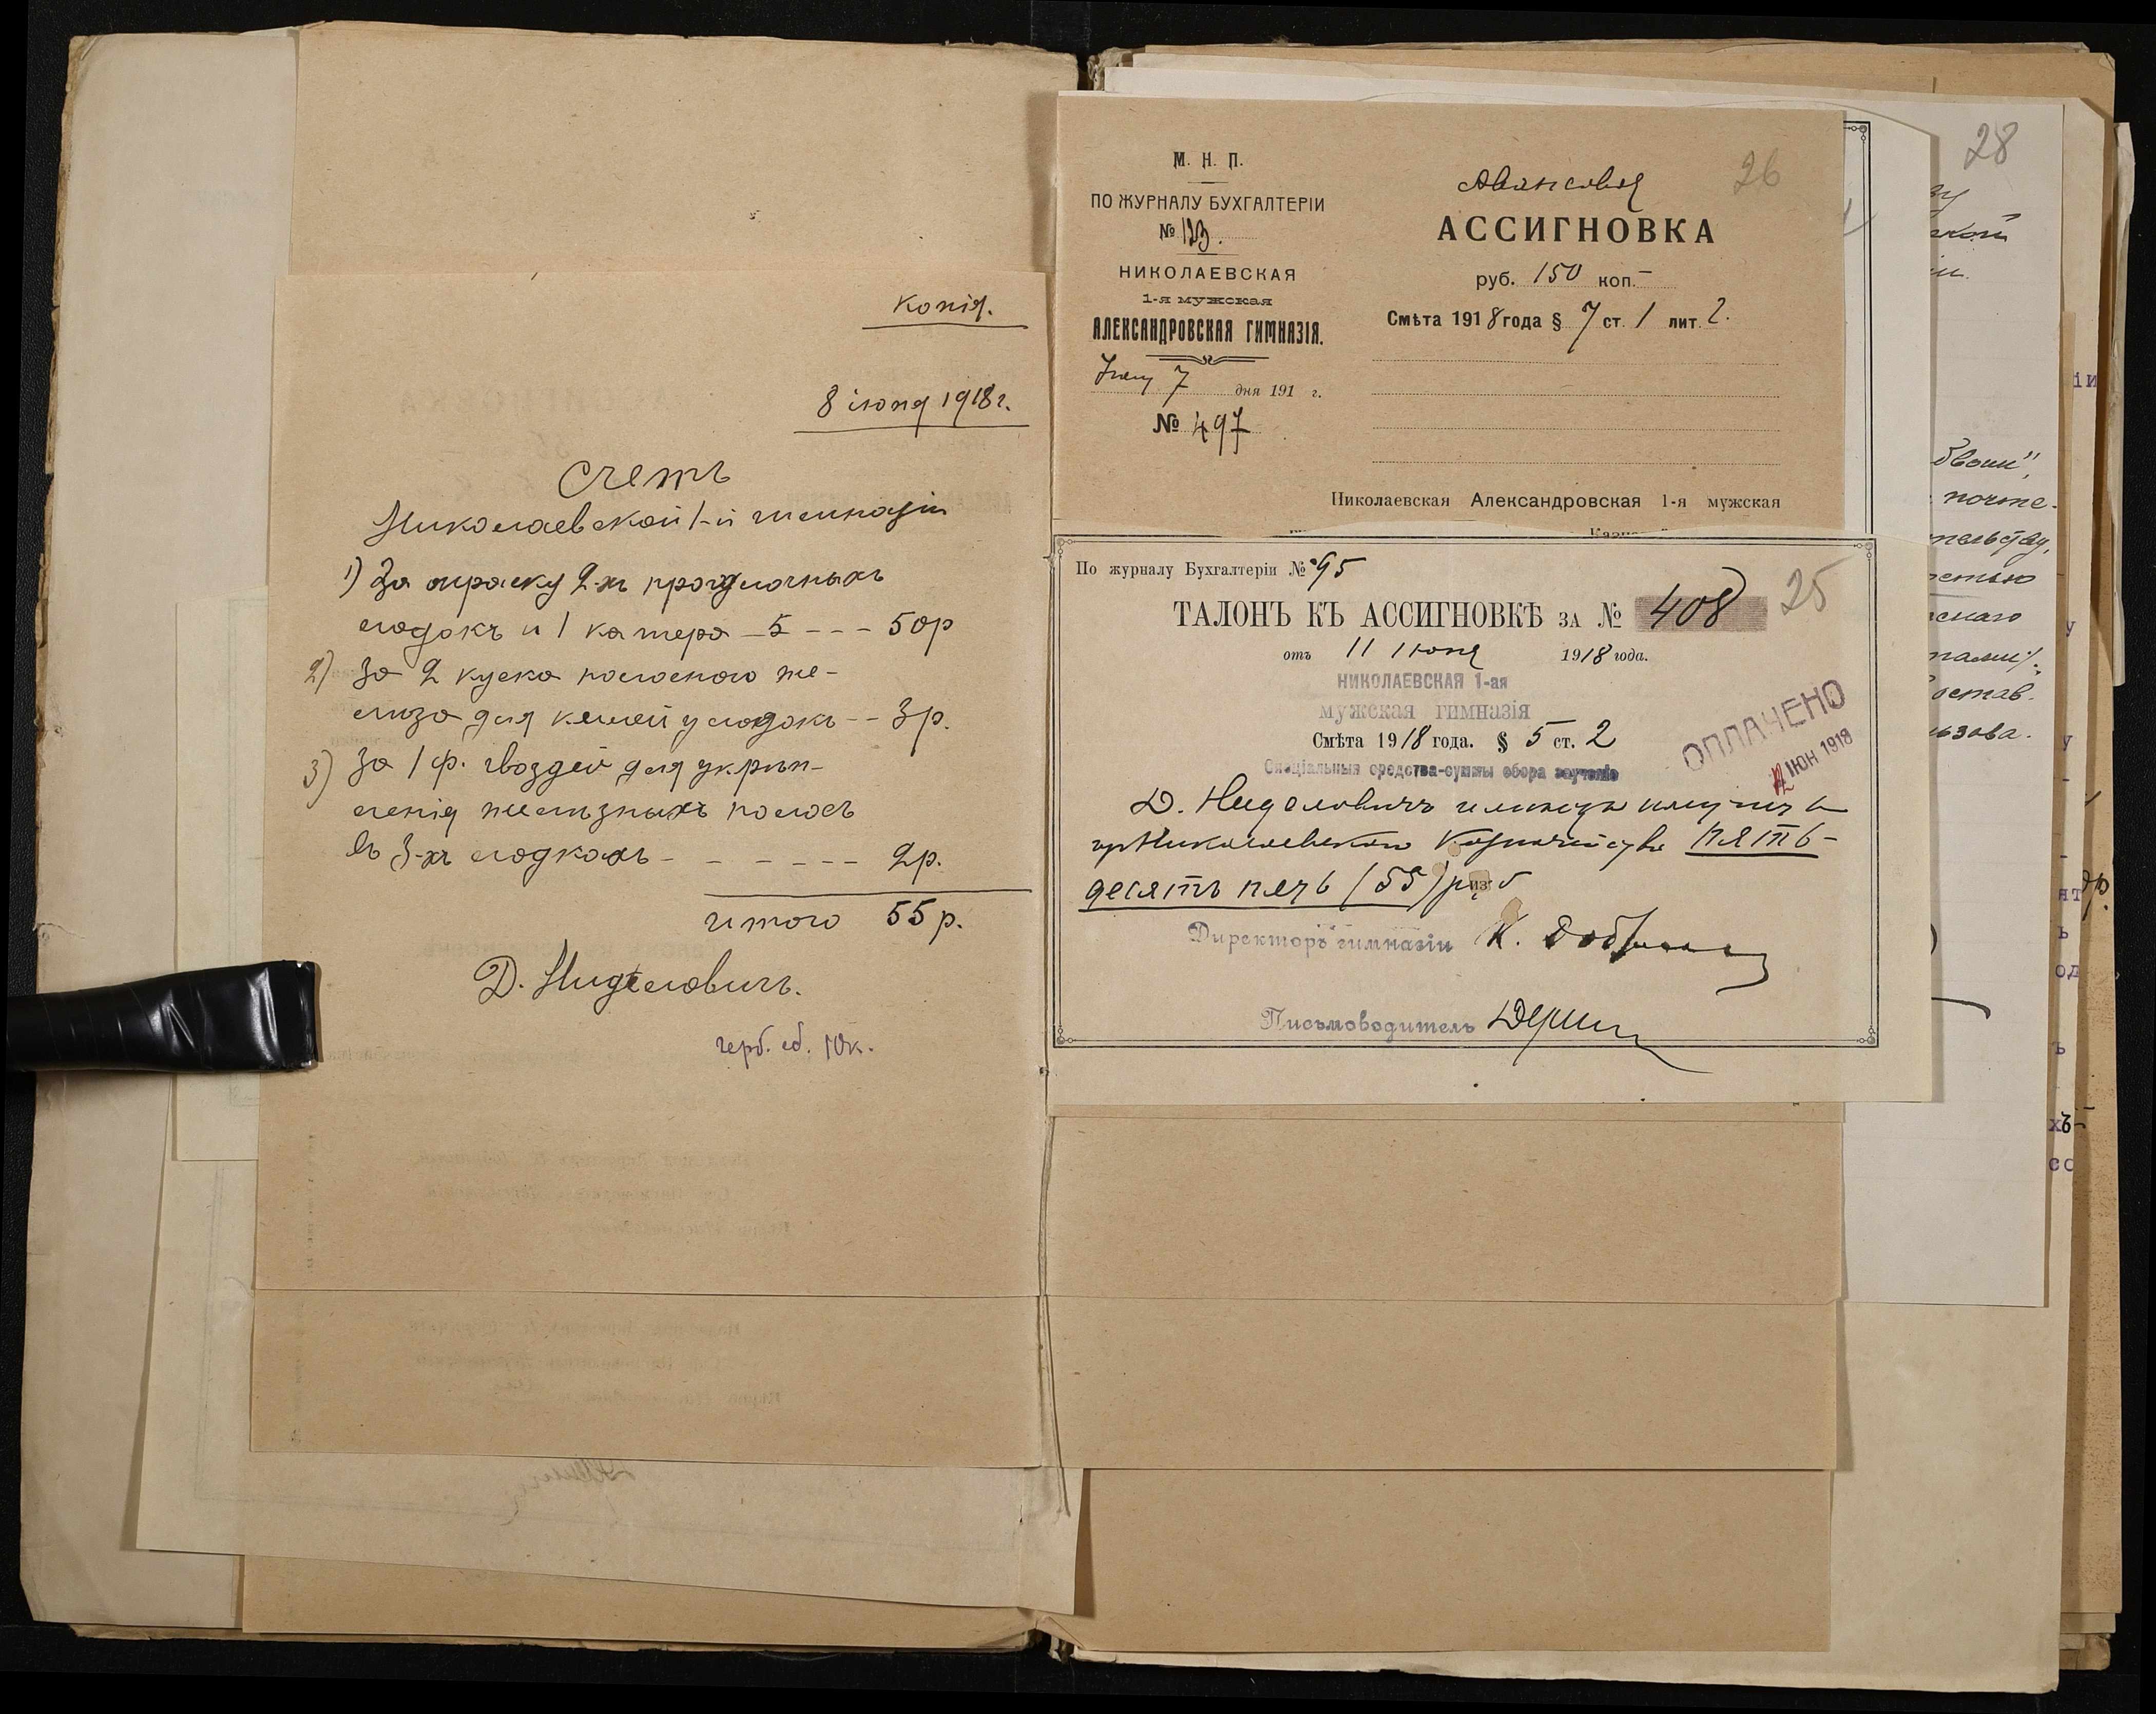 копія.
8 іюня 1918 г.
Счетъ
Николаевской 1-й гимназіи
1) За окраску 2-хъ прогулочныхъ
лодокъ и 1 катера – 5 - - - 50 р
2) За 2 куска полосного же-
лѣза для килей у лодокъ - - 3 р.
3) За 1 ф. гвоздей для укрѣп-
ленія желѣзныхъ полосъ
въ 3-хъ лодкахъ - - - - - - 2 р.
итого 55 р.
Д. Нидѣловичъ.
герб. сб. 10 к.
М. Н. П.
ПО ЖУРНАЛУ БУХГАЛТЕРІИ
№ 123.
НИКОЛАЕВСКАЯ
1-я мужская
АЛЕКСАНДРОВСКАЯ ГИМНАЗІЯ.
7 дня 191 г.
№ 497
26
Авансовая
АССИГНОВКА
руб. 150 коп. –
Смѣта 1918 года § 7 ст. 1 лит. 2.
Николаевская Александровская 1-я мужская
По журналу Бухгалтеріи № 95
ТАЛОНЪ КЪ АССИГНОВКѢ ЗА № 408
25
отъ 11 Іюня 1918 года.
НИКОЛАЕВСКАЯ 1-ая
мужская гимназія
Смѣта 1918 года. § 5 ст. 2
Спеціальныя средства-суммы сбора за ученіе
ОПЛАЧЕНО
12 ІЮН 1918
Д. Нидѣловичъ имѣетъ получить
изъ Николаевскаго Казначейства пять-
десятъ пять (55) руб
Директоръ гимназіи К.
Письмоводитель
28
почте-
остав-